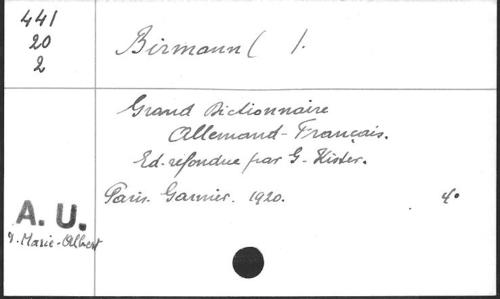 441
20
2
Birmann ( ).
Grand Dictionnaire
Allemand-Français.
Ed. refondue par G. Kister.
Paris. Garnier. 1920. 4°
A. U.
Marie-Albert